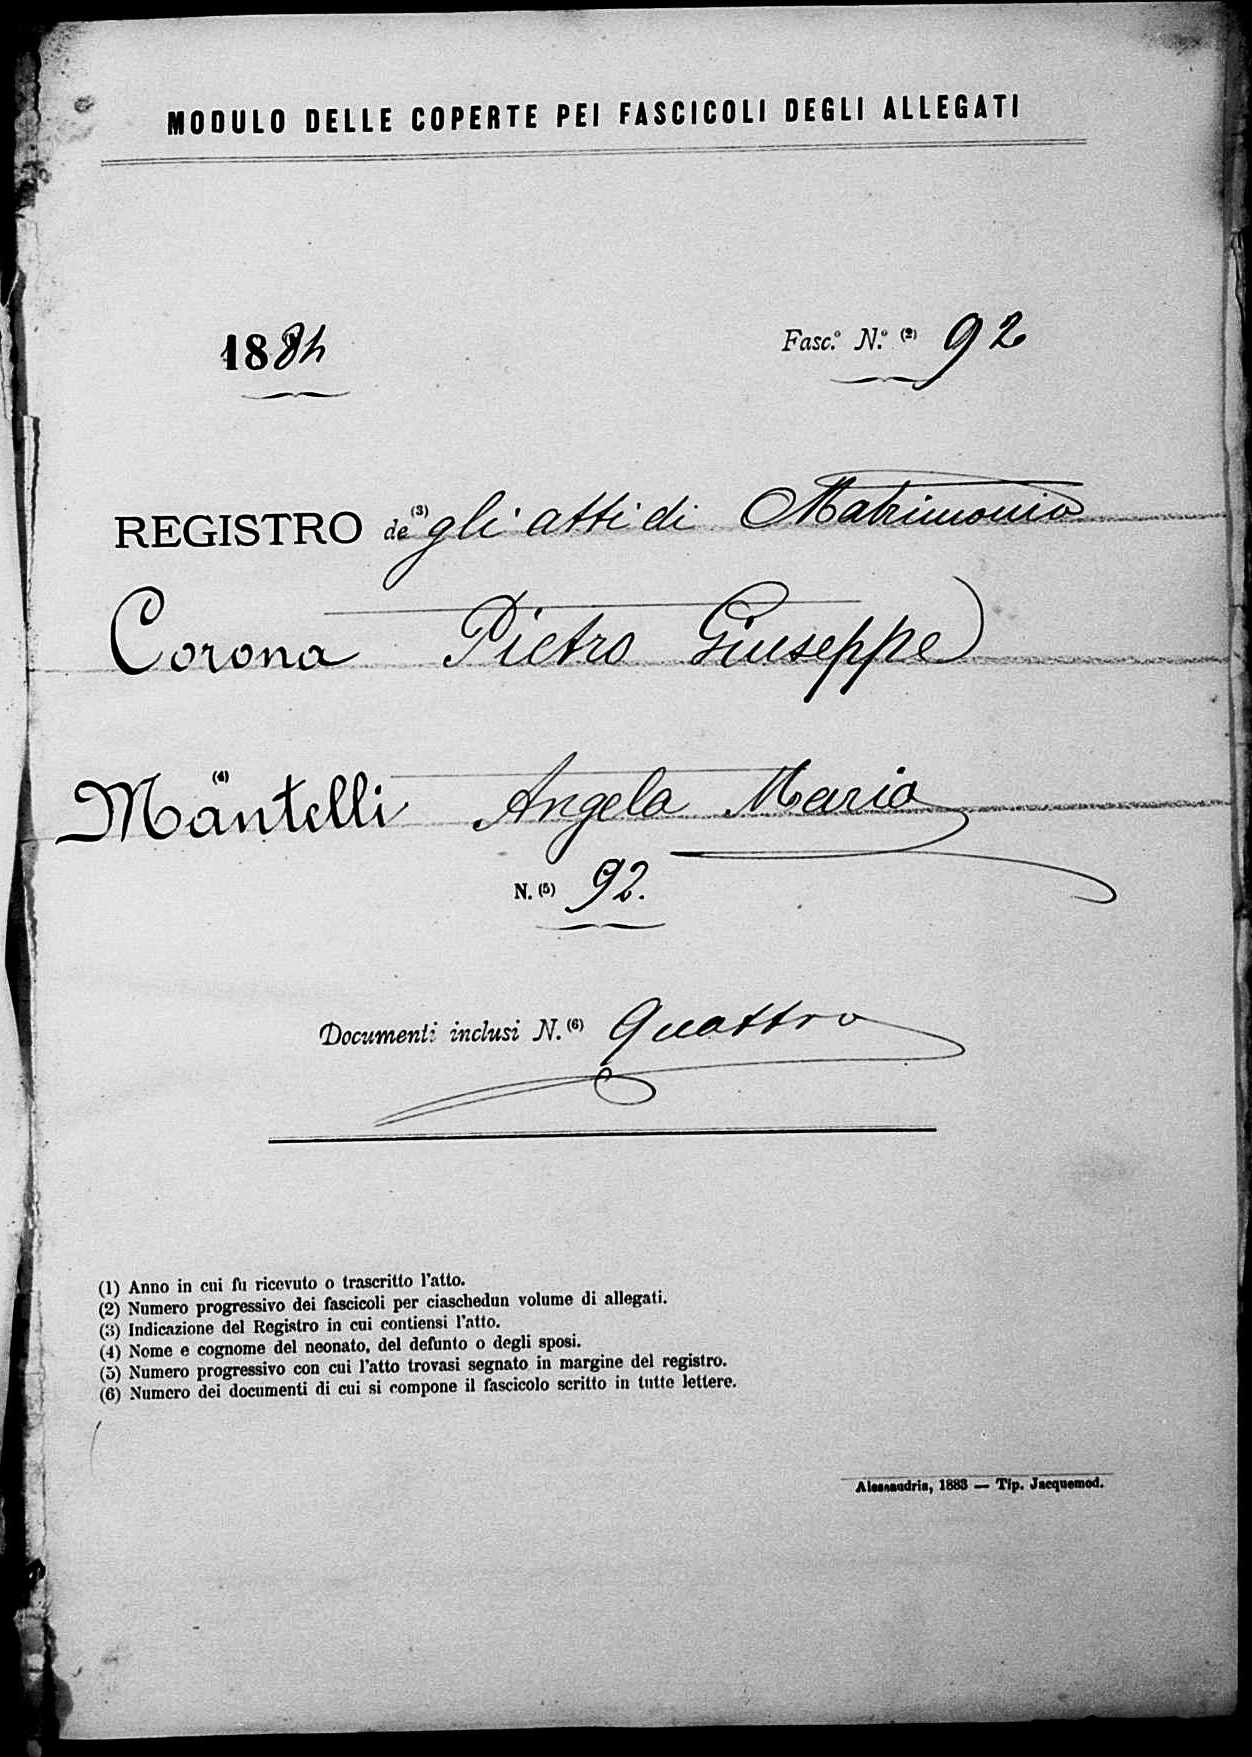 MODULO DELLE COPERTE PEI FASCICOLI DEGLI ALLEGATI
1884
Fasc.º N.º (2) 92
REGISTRO de (3) gli atti di Matrimonio
Corona Pietro Giuseppe
(4)
Mantelli Angela Maria
N. (5) 92.
Documenti inclusi N. (6) Quattro
(1) Anno in cui fu ricevuto o trascritto l'atto.
(2) Numero progressivo dei fascicoli per ciaschedun volume di allegati.
(3) Indicazione del Registro in cui contiensi l'atto.
(4) Nome e cognome del neonato, del defunto o degli sposi.
(5) Numero progressivo con cui l'atto trovasi segnato in margine del registro.
(6) Numero dei documenti di cui si compone il fascicolo scritto in tutte lettere.
Alessandria, 1883 — Tip. Jacquemod.